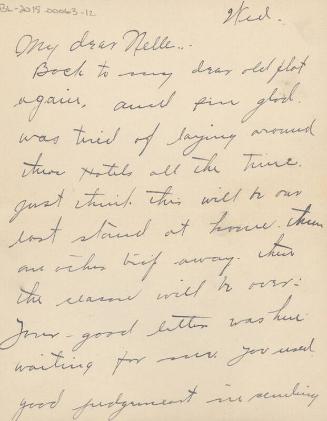 BL-2015.00063-12
Wed.
My dear Nelle..
Back to my dear old flat
again, and I'm glad.
was tired of laying around
these Hotels all the time.
just think this will be our
last stand at home. then
one other trip away. then
the season will be over:
Your good letter was here
waiting for me. You used
good judgement in sending